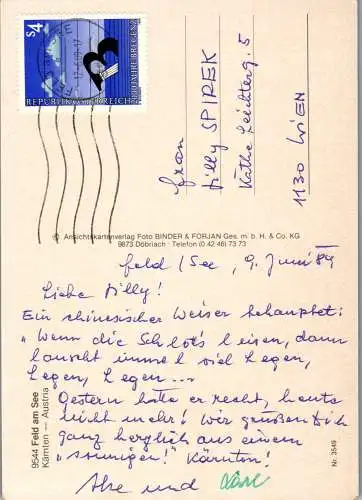 S 4
REPUBLIK ÖSTERREICH
2000 JAHRE BREGENZ
Frau
Lilly SPIREK
Käthe Leichterg. 5
1130 WIEN
© Ansichtskartenverlag Foto BINDER & FORJAN Ges. m. b. H. & Co. KG
9873 Döbriach · Telefon (0 42 46) 73 73
Feld / See, 9. Juni 84
Liebe Lilly!
Ein chinesischer Weiser behauptet:
"Wenn die leisen, dann
immel viel Legen,
Legen, Legen ...
Gestern hatte er recht, heute
nicht mehr! Wir grüßen Dich
ganz herzlich aus einem
"sonnigen" Kärnten!
und
9544 Feld am See
Kärnten — Austria
Nr. 3549